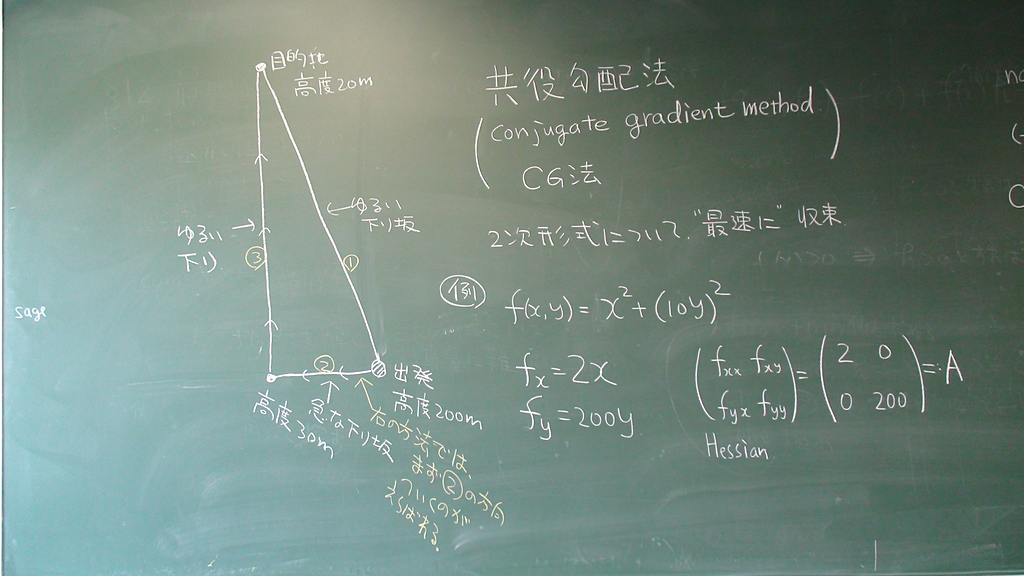 目的地
高度20m
ゆるい
下り坂
ゆるい
下り
③
①
sage
②
出発
高度200m
高度30m
急な下り坂
右の方法では、
まず②の方向
えらばれる。
共役勾配法
(conjugate gradient method)
CG法
2次形式について、"最速に"収束
例
f(x,y)= x²+(10y)²
fx=2x
fy=200y
(fxx fxy) = (2 0) =: A
(fyx fyy) (0 200)
Hessian